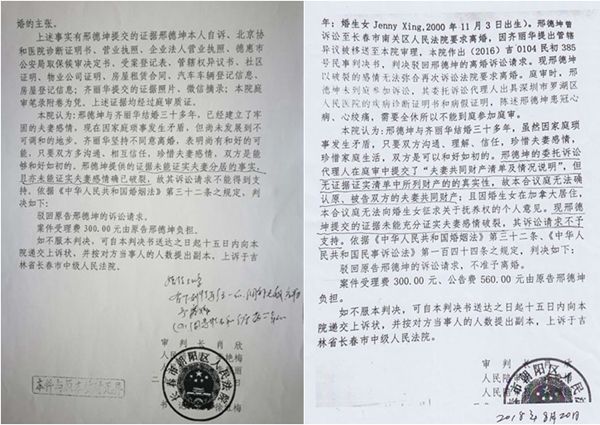 婚的主张。
上述事实有邢德坤提交的证据邢德坤本人自诉、北京协
和医院诊断证明书、营业执照、企业法人营业执照、德惠市
公安局取保候审决定书、受案登记表、管辖权异议书、社区
证明、物业公司证明、房屋租赁合同、汽车车辆登记信息、
房屋登记信息；齐丽华提交的证据照片、微信摘录；本院庭
审笔录附卷为凭。上述证据均经过庭审质证。
本院认为:邢德坤与齐丽华结婚三十多年，已经建立了牢
固的夫妻感情，现在因家庭琐事发生矛盾，但尚未发展到不
可调和的地步。齐丽华坚持不同意离婚，表明尚有和好的可
能，只要双方多沟通、相互信任，珍惜夫妻感情，双方是能
够和好如初的。邢德坤提供的证据未能证实夫妻分居的事实，
且亦未能证实夫妻感情确已破裂，故其诉讼请求不能得到支
持。依据《中华人民共和国婚姻法》第三十二条之规定，判
决如下：
驳回原告邢德坤的诉讼请求。
案件受理费 300.00 元由原告邢德坤负担。
如不服本判决，可自本判决书送达之日起十五日内向本
院递交上诉状，并按对方当事人的人数提出副本，上诉于吉
林省长春市中级人民法院。
审 判 长 肖 欣
本件与原本核对无异
长春市朝阳区人民法院
年；婚生女 Jenny Xing,2000 年 11 月 3 日出生）。邢德坤曾
诉讼至长春市南关区人民法院要求离婚。因齐丽华提出管辖
异议被移送至本院审理，本院作出（2016）吉 0104 民初 385
号民事判决书，判决驳回邢德坤的离婚诉讼请求。现邢德坤
以破裂的感情无法弥合再次诉讼法院要求离婚。庭审时，邢
德坤未到庭参加诉讼，其委托诉讼代理人出具深圳市罗湖区
人民医院的疾病诊断证明书和病假证明，陈述邢德坤患冠心
病、心绞痛，需要全休所以不能到庭参加庭审。
本院认为:邢德坤与齐丽华结婚三十多年，虽然因家庭琐
事发生矛盾，只要双方多沟通、理解、信任，珍惜夫妻感情，
珍惜家庭生活，双方是可以和好如初的。邢德坤的委托诉讼
代理人在庭审中提交了“夫妻共同财产清单及情况说明”，但
无证据证实清单中所列财产的的真实性，故本合议庭无法确
认原、被告双方的夫妻共同财产；且因婚生女在加拿大居住，
本合议庭无法向婚生女征求关于抚养权的个人意见。现邢德
坤提交的证据未能充分证实夫妻感情破裂，其诉讼请求不予
支持。依据《中华人民共和国婚姻法》第三十二条、《中华人
民共和国民事诉讼法》第一百四十四条之规定，判决如下：
驳回原告邢德坤的诉讼请求，不准予离婚。
案件受理费 300.00 元、公告费 560.00 由原告邢德坤
负担。
如不服本判决，可自本判决书送达之日起十五日内向本
院递交上诉状，并按对方当事人的人数提出副本，上诉于
吉林省长春市中级人民法院。
审 判 长
人民陪
人民
长春市朝阳区人民法院
2018年8月20日